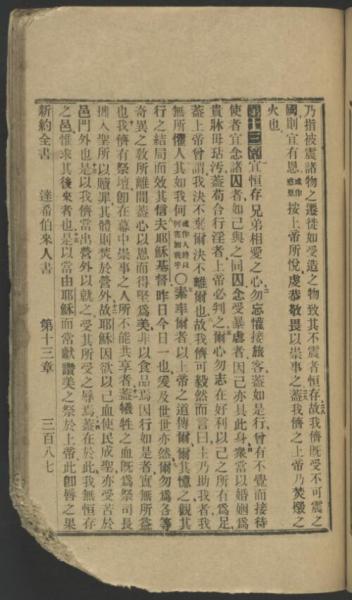 乃指被震諸物之遷徙如受造之物致其不震者恒存故我儕既受不可震之
國則宜有恩 按上帝所悅虔恭敬畏以崇事之蓋我儕之上帝乃焚燬之
火也
第十三章 宜恒存兄弟相愛之心勿忘懽接旅客蓋如是行曾有不覺而接待
使者宜念諸囚者如己與之同囚念受暴虐者因己亦具此身衆當以婚姻為
貴牀毋玷污蓋苟合行淫者上帝必判之爾心勿志在好利以己之所有為足
蓋上帝曾謂我決不棄爾決不離爾也故我儕可毅然而言曰主乃助我者我
無所懼人其如我何 ○素率爾者以上帝之道傳爾爾其憶之觀其
行之結局而效其信夫耶穌基督昨日今日一也爰及世世亦然爾勿為各等
奇異之教所離間蓋心以恩而得堅為美非以食品為因行如是者實無所益
也我儕有祭壇卽在幕中崇事之人所不能共享者蓋犧牲之血既為祭司長
携入聖所以贖罪其體則焚於營外故耶穌因欲以己血使民成聖亦受苦於
邑門外也是以我儕當出營外以就之受其所受之辱焉蓋在於此我無恒存
之邑惟求其後來者也是以當由耶穌而常獻讚美之祭於上帝此卽唇之果
新約全書 達希伯來人書 第十三章 三百八七